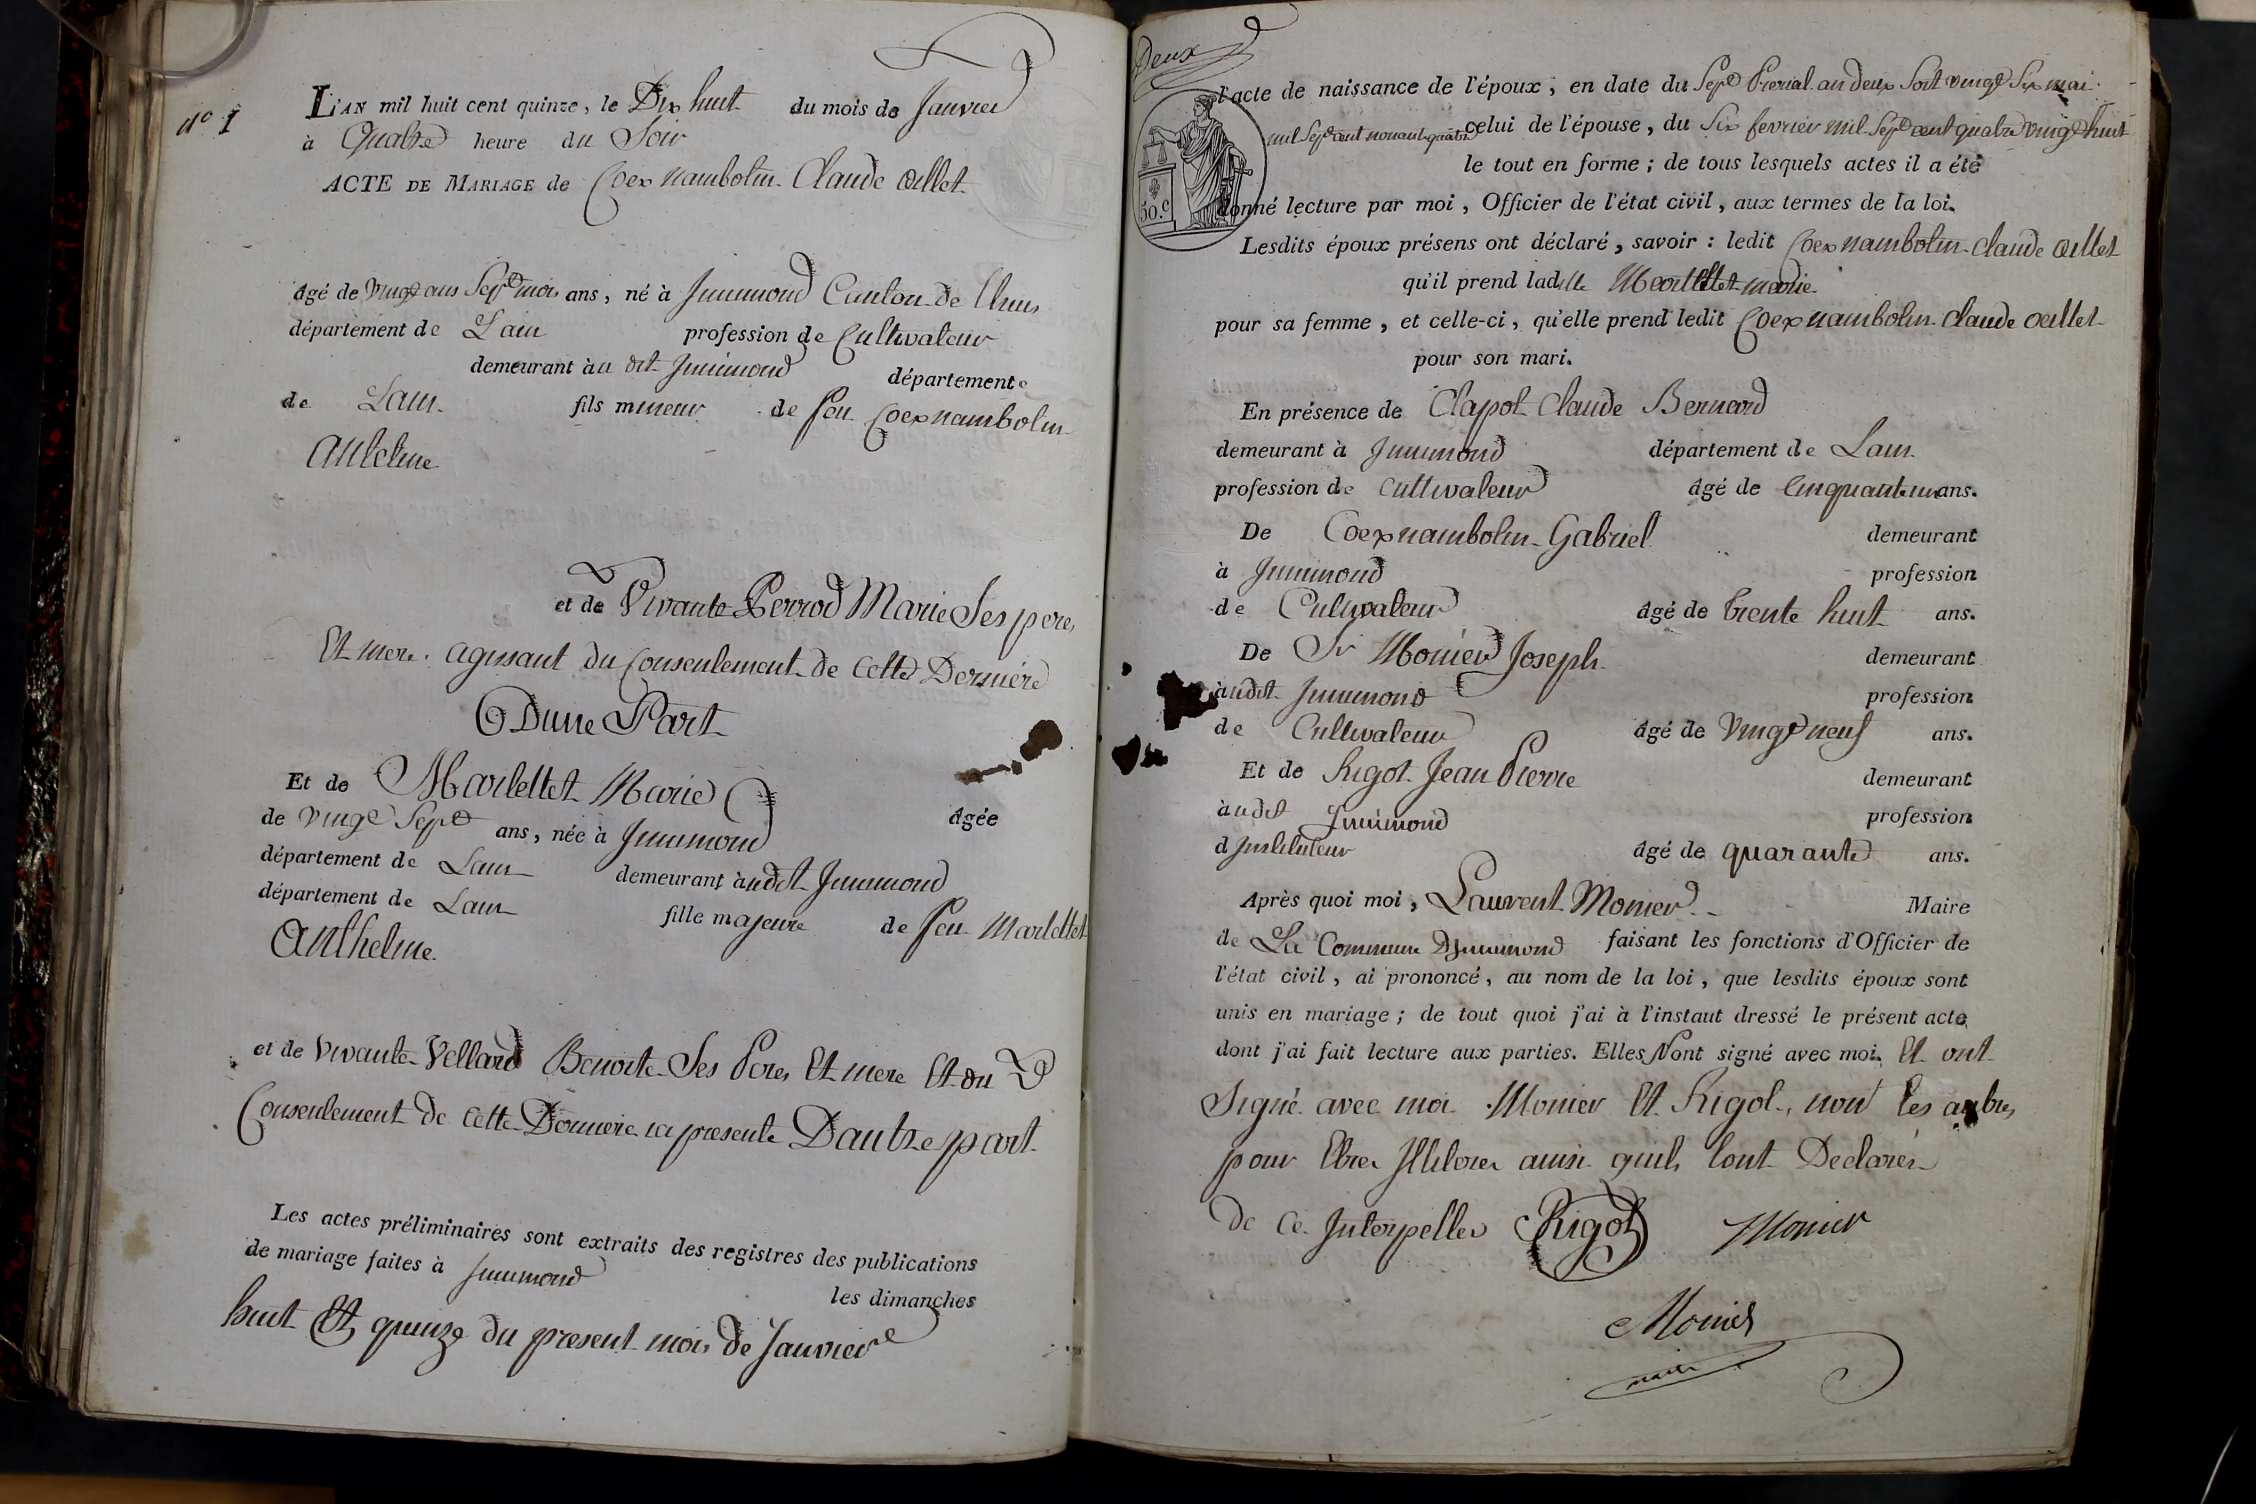 n° 1
L'AN mil huit cent quinze, le Dix huit du mois de Janvier
à Quatre heure du Soir
ACTE DE MARIAGE de Coexnambolin Claude œillet
âgé de vingt ans Sept mois ans, né à Jnnimond Canton de Lhuis
département de Lain profession de Cultivateur
demeurant à u dit Jnnimond département
de Lain fils mineur de feu Coexnambolin
Anthelme
et de Vivante Perrod Marie Ses pere
Et mere agissant du Consentement de Cette Derniere
Dune Part
Et de Marlettet Marie âgée
de vingt Sept ans, née à Jnnimond
département de Lain demeurant audit Jnnimond
département de Lain fille majeure de feu Marlettet
Anthelme
et de vivante Vellard Benoite Ses Peres Et mere Et du
Consentement de Cette Derniere ici presente Dautre part
Les actes préliminaires sont extraits des registres des publications
de mariage faites à Jnnimond les dimanches
huit Et quinze du present mois de Janvier
Deux
l'acte de naissance de l'époux, en date du Sept Prerial an deux Soit vingt Six mai
mil Sept cent nonante quatre celui de l'épouse, du Six fevrier mil Sept cent quatre vingt huit
le tout en forme; de tous lesquels actes il a été
50.c
donné lecture par moi, Officier de l'état civil, aux termes de la loi.
Lesdits époux présens ont déclaré, savoir : ledit Coexnambolin Claude œillet
qu'il prend ladite Marlettet marie
pour sa femme, et celle-ci, qu'elle prend ledit Coexnambolin Claude œillet
pour son mari.
En présence de Clapot Claude Bernard
demeurant à Jnnimond département de Lain
profession de Cultivateur âgé de Cinquante un ans.
De Coexnambolin Gabriel demeurant
à Jnnimond profession
de Cultivateur âgé de trente huit ans.
De Sr Monier Joseph demeurant
audit Jnnimond profession
de Cultivateur âgé de vingt neuf ans.
Et de Rigot Jean Pierre demeurant
audit Jnnimond profession
d Jnstituteur âgé de quarante ans.
Après quoi moi, Laurent Monier Maire
de La Commune DJnnimond faisant les fonctions d'Officier de
l'état civil, ai prononcé, au nom de la loi, que lesdits époux sont
unis en mariage; de tout quoi j'ai à l'instant dressé le présent acte
dont j'ai fait lecture aux parties. Elles Nont signé avec moi. Et ont
Signé avec moi Monier Et Rigot, non les autres
pour Etre Jlliterer ainsi quils lont Declarés
de ce Jnterpeller Rigot Monier
Monier
maire